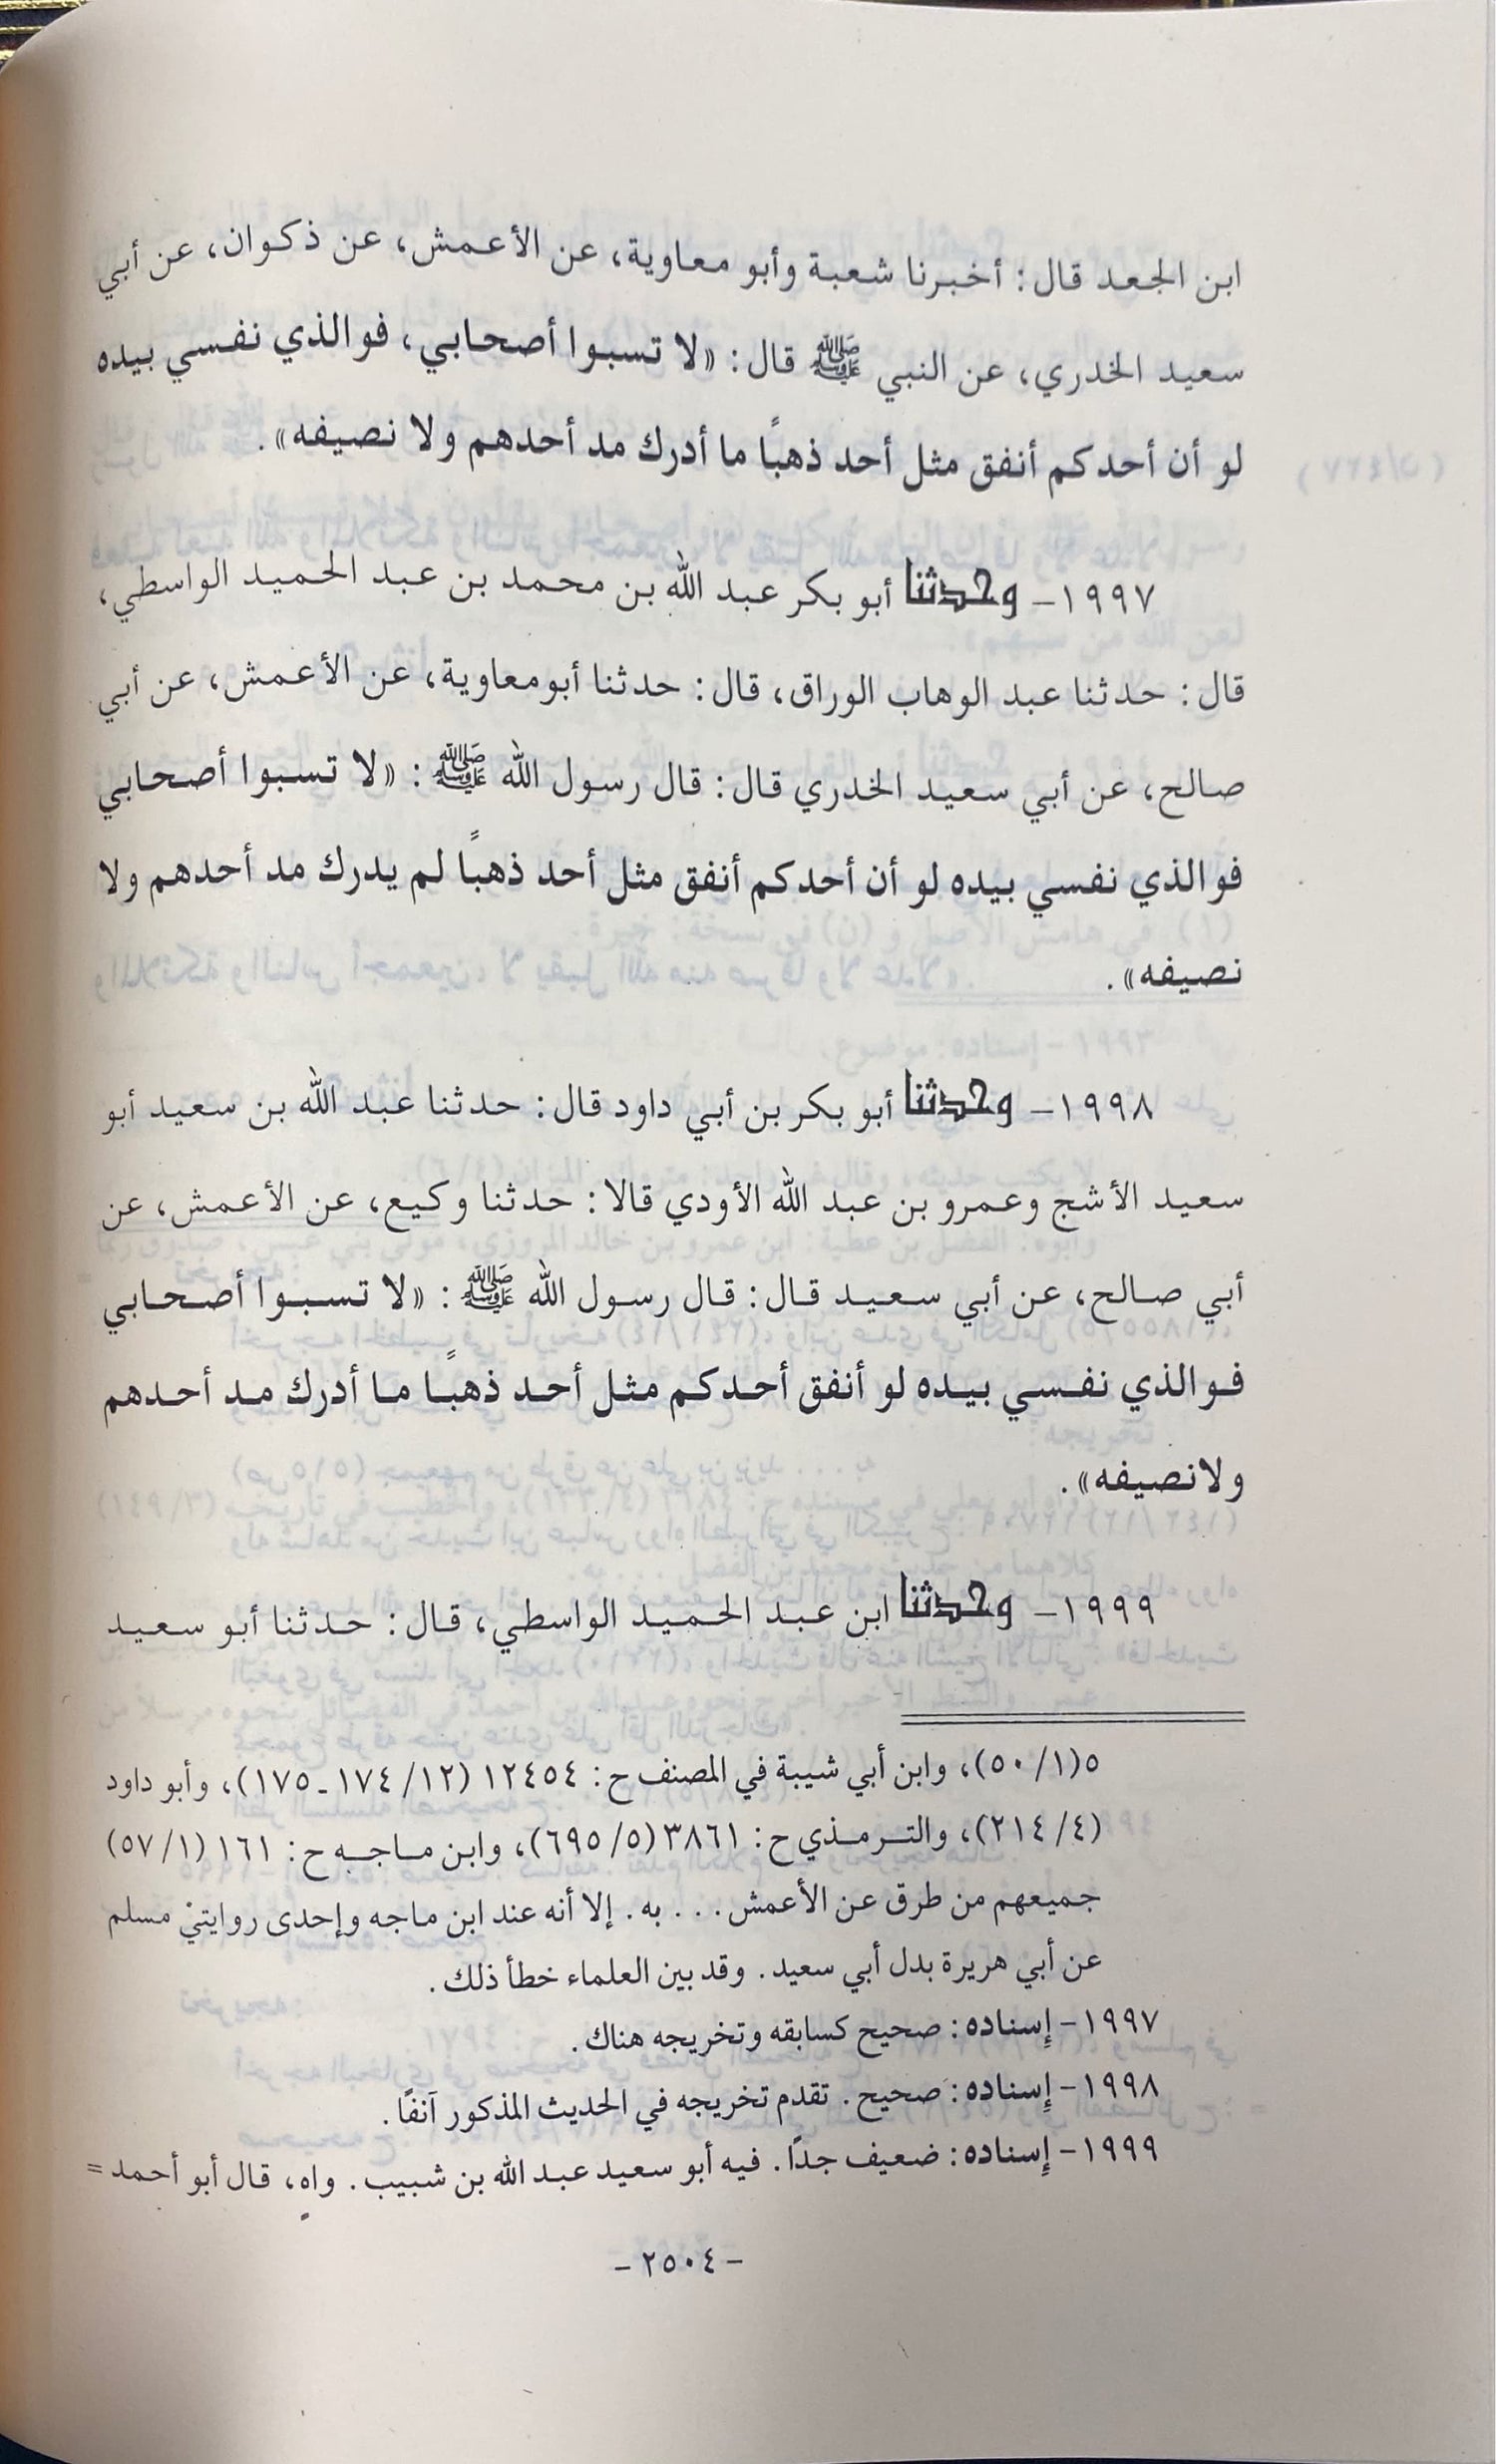 ابن الجعد قال: أخبرنا شعبة وأبو معاوية، عن الأعمش، عن ذكوان، عن أبي
سعيد الخدري، عن النبي ﷺ قال: «لا تسبوا أصحابي، فوالذي نفسي بيده
لو أن أحدكم أنفق مثل أحد ذهبًا ما أدرك مد أحدهم ولا نصيفه».
١٩٩٧- وحدثنا أبو بكر عبد الله بن محمد بن عبد الحميد الواسطي،
قال: حدثنا عبد الوهاب الوراق، قال: حدثنا أبومعاوية، عن الأعمش، عن أبي
صالح، عن أبي سعيد الخدري قال: قال رسول الله ﷺ: «لا تسبوا أصحابي
فوالذي نفسي بيده لو أن أحدكم أنفق مثل أحد ذهبًا لم يدرك مد أحدهم ولا
نصيفه».
١٩٩٨- وحدثنا أبو بكر بن أبي داود قال: حدثنا عبد الله بن سعيد أبو
سعيد الأشج وعمرو بن عبد الله الأودي قالا: حدثنا وكيع، عن الأعمش، عن
أبي صالح، عن أبي سعيد قال: قال رسول الله ﷺ: «لا تسبوا أصحابي
فوالذي نفسي بيده لو أنفق أحدكم مثل أحد ذهبًا ما أدرك مد أحدهم
ولانصيفه».
١٩٩٩- وحدثنا ابن عبد الحميد الواسطي، قال: حدثنا أبو سعيد
٥(٥٠/١)، وابن أبي شيبة في المصنف ح: ١٢٤٥٤ (١٢/ ١٧٤ـ ١٧٥)، وأبو داود
(٢١٤/٤)، والترمذي ح: ٣٨٦١ (٦٩٥/٥)، وابن ماجه ح: ١٦١ (٥٧/١)
جميعهم من طرق عن الأعمش... به. إلا أنه عند ابن ماجه وإحدى روايتيْ مسلم
عن أبي هريرة بدل أبي سعيد. وقد بين العلماء خطأ ذلك.
١٩٩٧- إسناده: صحيح كسابقه وتخريجه هناك.
١٩٩٨- إسناده: صحيح. تقدم تخريجه في الحديث المذكور آنفًا.
١٩٩٩- إسناده: ضعيف جدًا. فيه أبو سعيد عبد الله بن شبيب. واهٍ، قال أبو أحمد =
- ٢٥٠٤ -